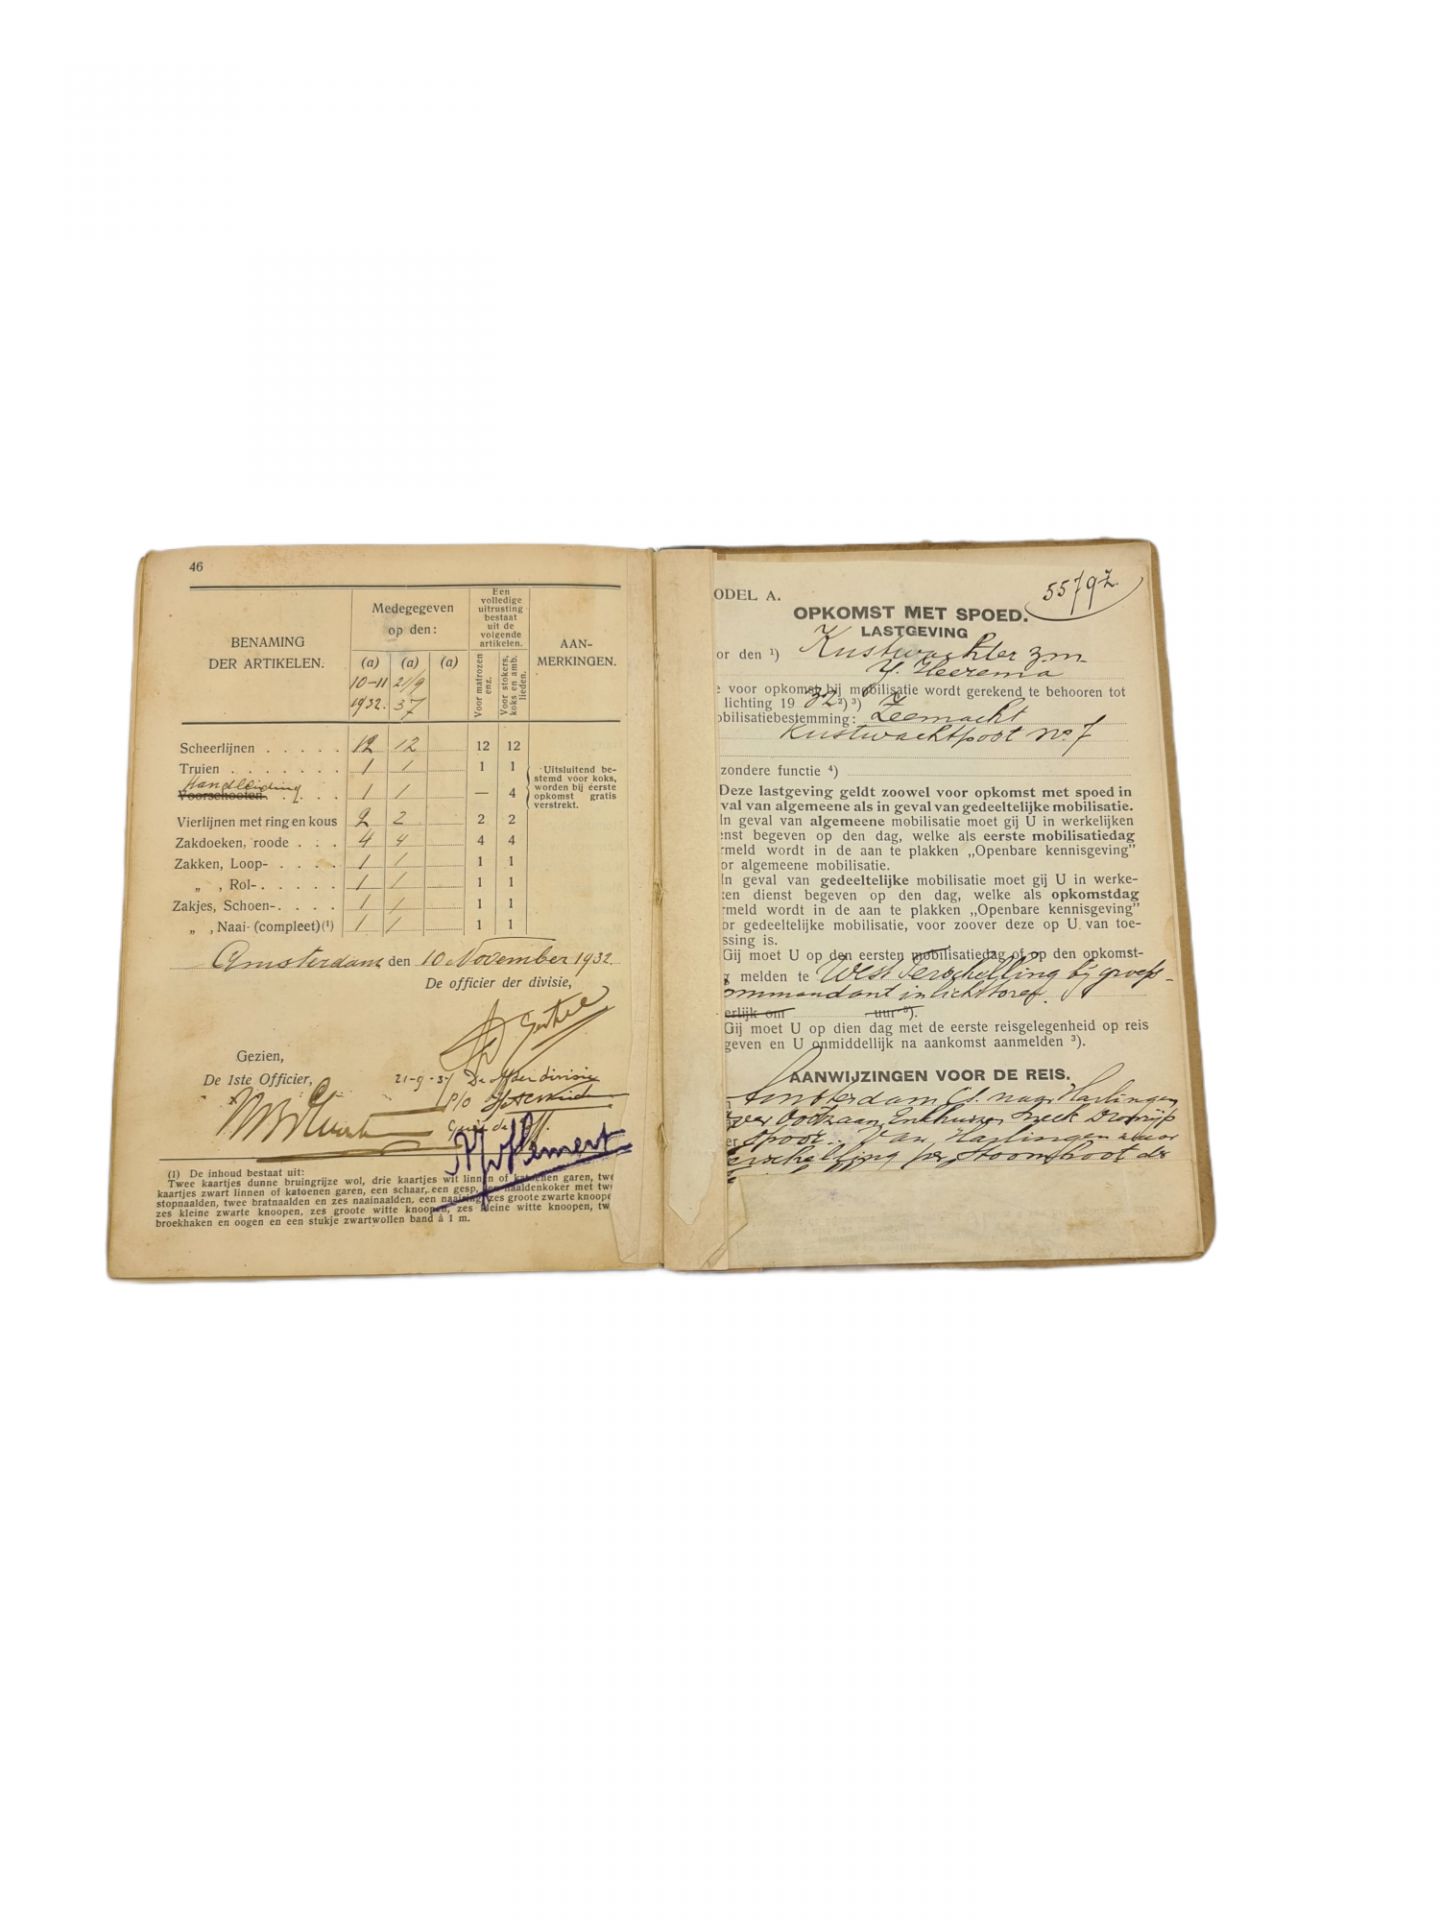 46
BENAMING
DER ARTIKELEN.
Medegegeven
op den:
(a) (a) (a)
10-11 21/9
1932. 37
Een
volledige
uitrusting
bestaat
uit de
volgende
artikelen.
Voor matrozen
enz.
Voor stokers,
koks en amb.
lieden.
AAN-
MERKINGEN.
Scheerlijnen . . . . . 12 12 12 12
Truien . . . . . . . 1 1 1 1
Handleiding
Voorschooten . . . . 1 1 — 4
Uitsluitend be-
stemd voor koks,
worden bij eerste
opkomst gratis
verstrekt.
Vierlijnen met ring en kous 2 2 2 2
Zakdoeken, roode . . . 4 4 4 4
Zakken, Loop- . . . . 1 1 1 1
„ , Rol- . . . . . 1 1 1 1
Zakjes, Schoen- . . . . 1 1 1 1
„ , Naai- (compleet)(1) 1 1 1 1
Amsterdam den 10 November 1932.
De officier der divisie,
Gezien,
De 1ste Officier,
21-9-37 De offder divisie
p/o
(1) De inhoud bestaat uit:
Twee kaartjes dunne bruingrijze wol, drie kaartjes wit linnen of katoenen garen, twe
kaartjes zwart linnen of katoenen garen, een schaar, een gesp, een naaldenkoker met tw
stopnaalden, twee bratnaalden en zes naainaalden, een naairing, zes groote zwarte knoope
zes kleine zwarte knoopen, zes groote witte knoopen, zes kleine witte knoopen, tw
broekhaken en oogen en een stukje zwartwollen band à 1 m.
ODEL A.
5579z
OPKOMST MET SPOED.
LASTGEVING
or den 1) Kustwachter zm.
Y. Heerema
e voor opkomst bij mobilisatie wordt gerekend te behooren tot
lichting 1932 2) 3)
obilisatiebestemming: Zeemacht
Kustwachtpost No 7
zondere functie 4)
Deze lastgeving geldt zoowel voor opkomst met spoed in
val van algemeene als in geval van gedeeltelijke mobilisatie.
In geval van algemeene mobilisatie moet gij U in werkelijken
enst begeven op den dag, welke als eerste mobilisatiedag
rmeld wordt in de aan te plakken „Openbare kennisgeving”
or algemeene mobilisatie.
In geval van gedeeltelijke mobilisatie moet gij U in werke-
ken dienst begeven op den dag, welke als opkomstdag
rmeld wordt in de aan te plakken „Openbare kennisgeving”
or gedeeltelijke mobilisatie, voor zoover deze op U van toe-
ssing is.
Gij moet U op den eersten mobilisatiedag of op den opkomst-
g melden te West Terschelling bij groeps-
ommandant in lichttoren.
erlijk om uur 5).
Gij moet U op dien dag met de eerste reisgelegenheid op reis
geven en U onmiddellijk na aankomst aanmelden 3).
AANWIJZINGEN VOOR DE REIS.
Amsterdam CS naar Harlingen
over Enkhuizen Sneek
per spoor. Van Harlingen naar
erschelling per stoomboot der